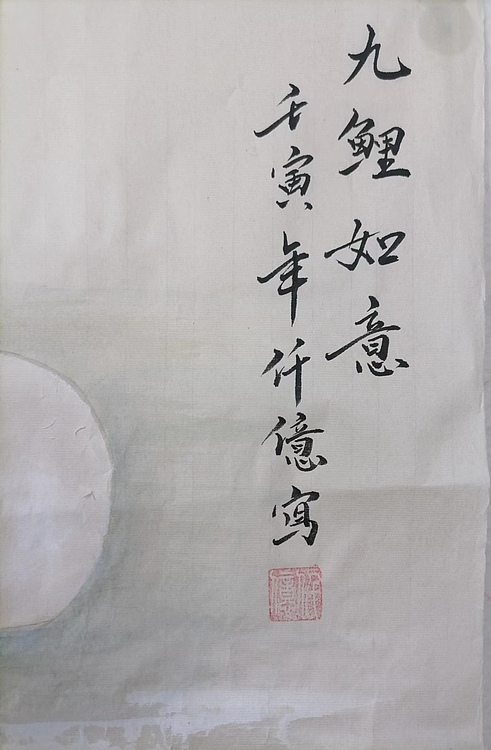 九鯉如意
壬寅年仟億寫